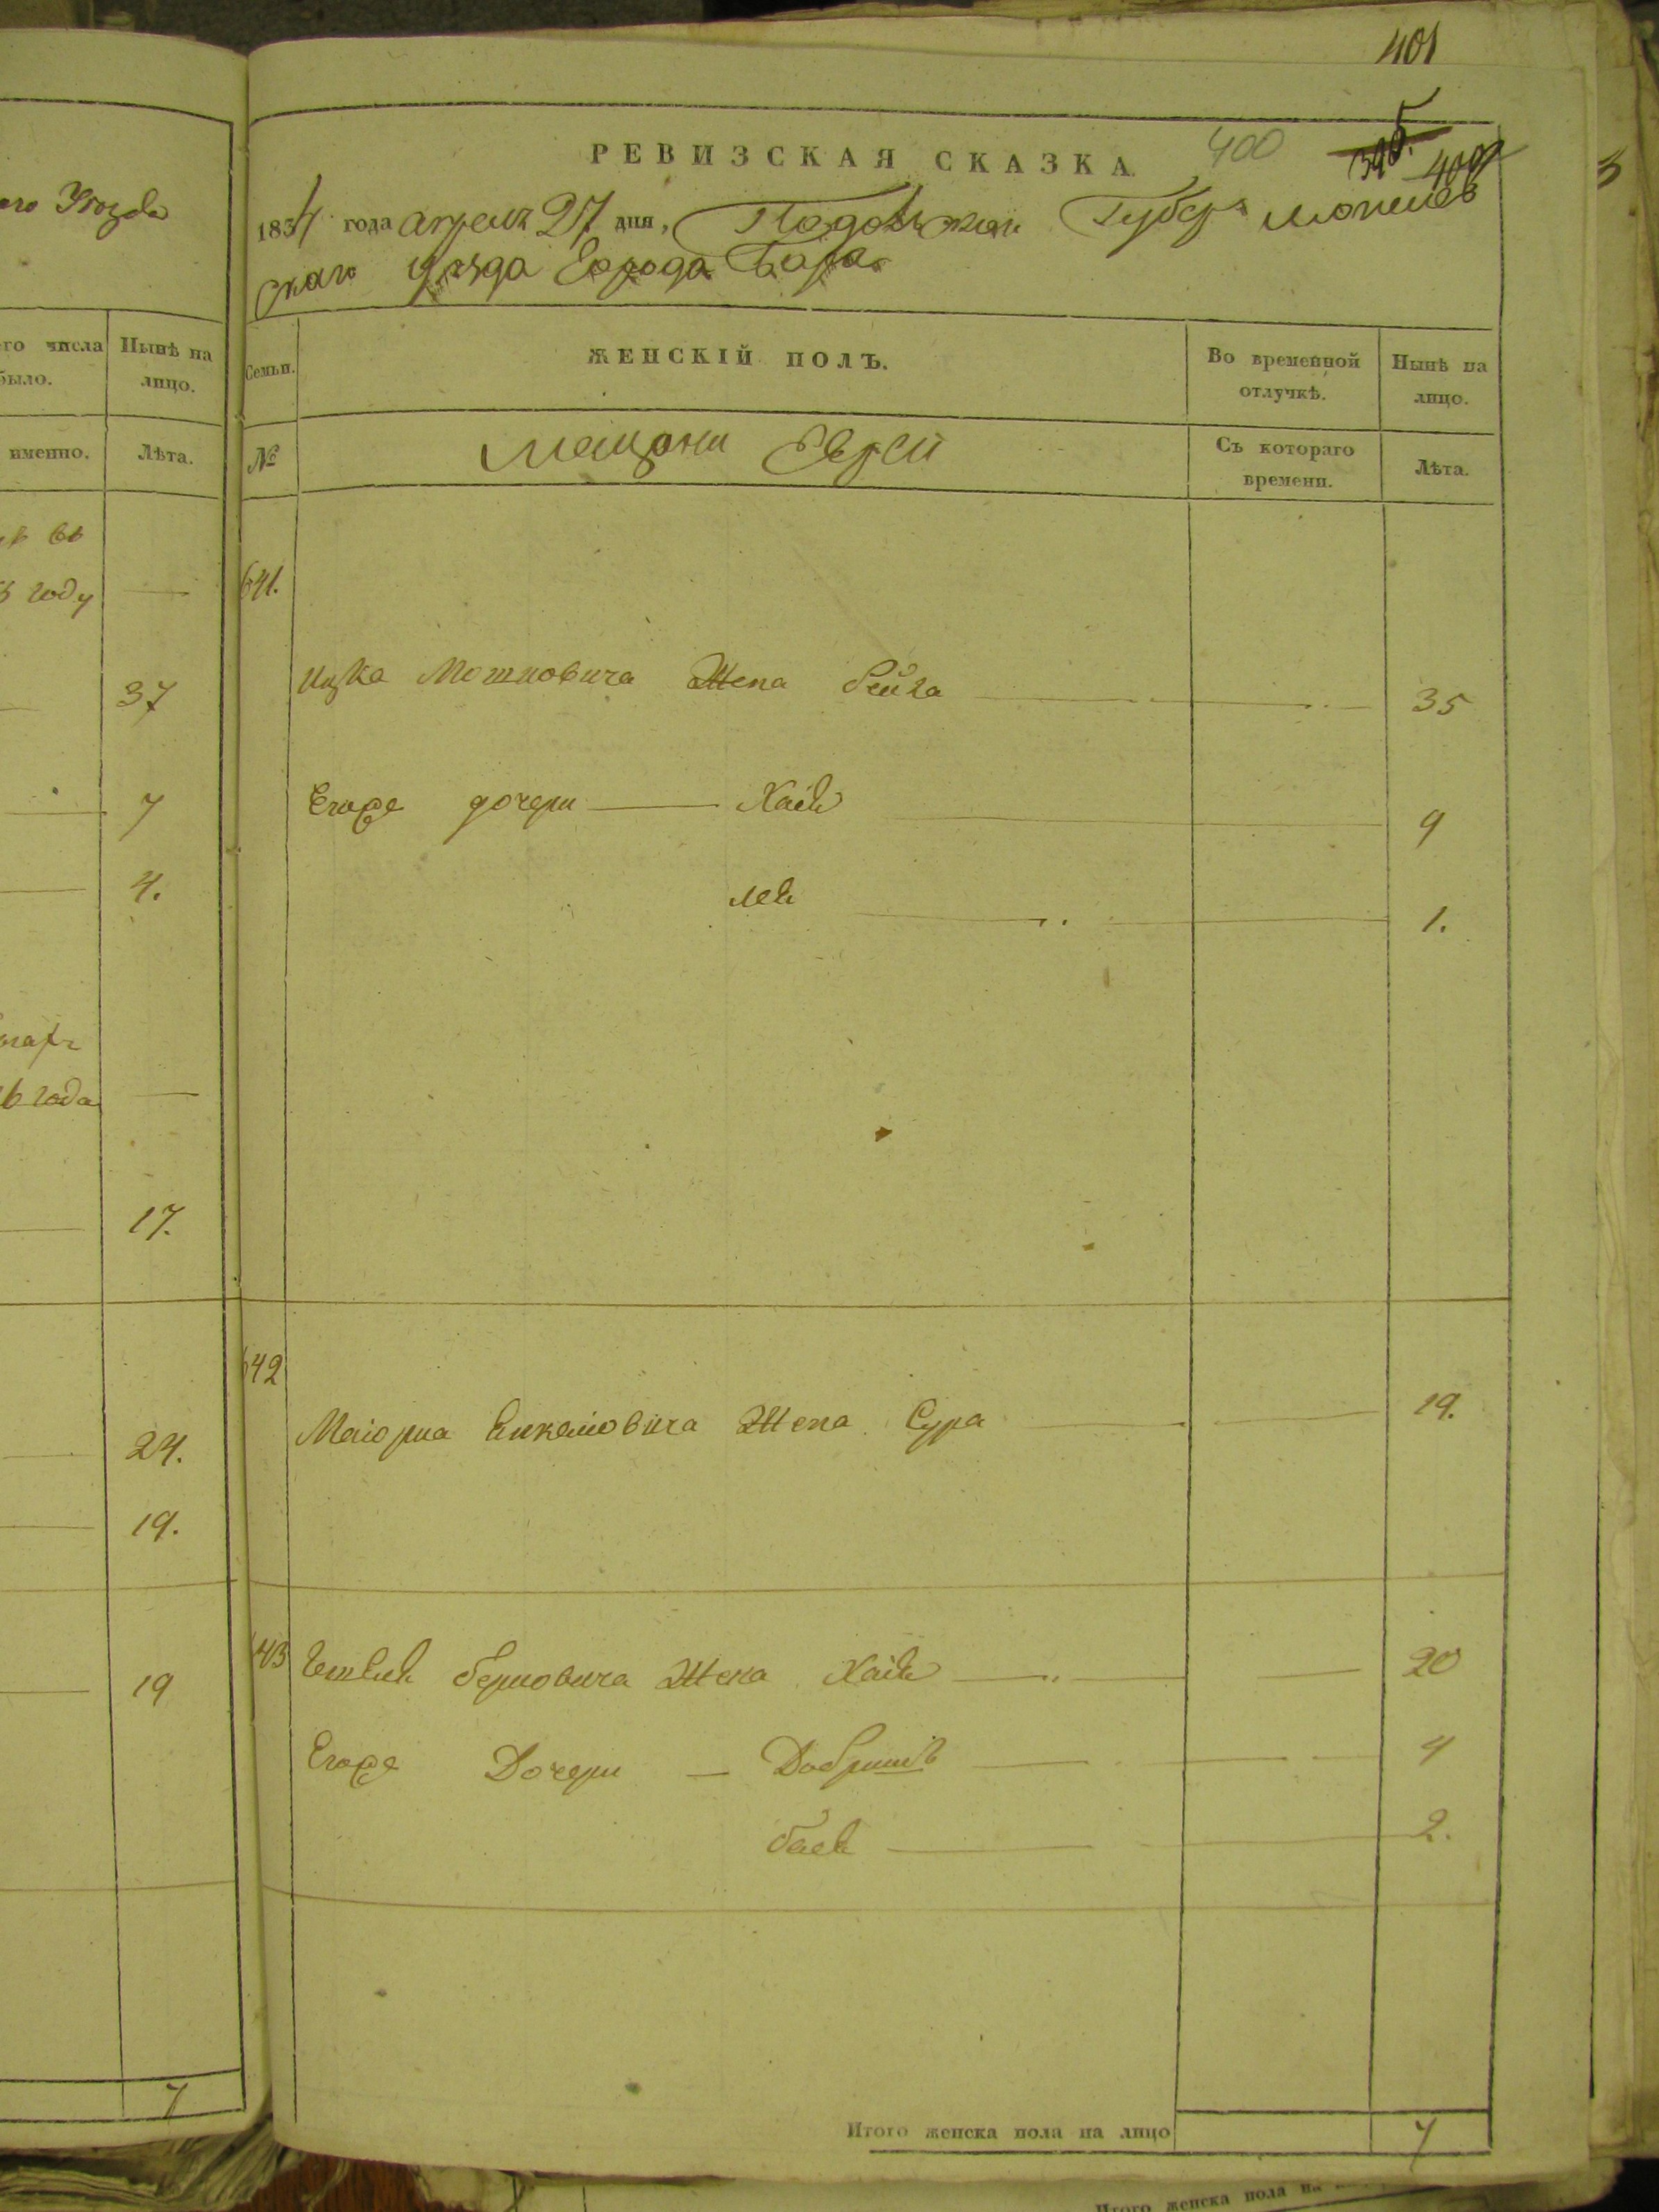 401
РЕВИЗСКАЯ СКАЗКА.
400
1834 года апреля 27 дня, Подольской Губер: Могилев
скаго уезда Города Бара
Семьи.
ЖЕНСКІЙ ПОЛЪ.
Во временной отлучкѣ.
Нынѣ на лицо.
№
мещани Евреи
Съ котораго времени.
Лѣта.
641.
Ицка Мошковича Жена бейла 35
Егоже дочери Хаія 9
лея 1.
642
Жена Сура 19.
643
берковича Жена Хаія 20
Егоже Дочери 4
бася 2.
Итого женска пола на лицо 7
го числа
было.
Нынѣ на лицо.
именно.
Лѣта.
въ
году
37
7
4.
6 года
17.
24.
19.
19
7